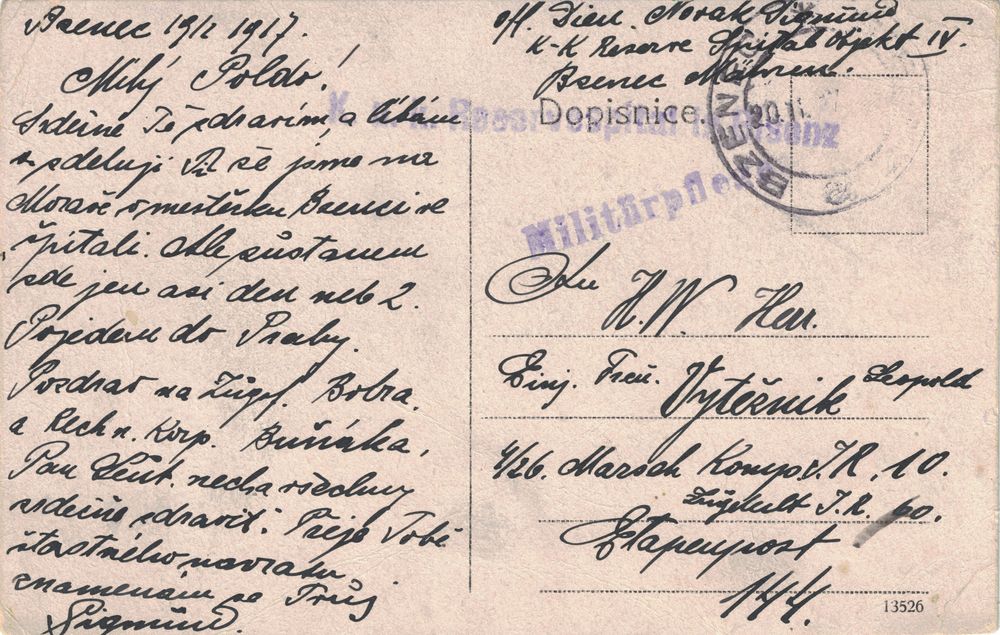 Bzenec 19/2 1917.
Milý Poldo!
Srdečně Tě zdravím a líbám
a sdeluji Ti že jsme na
Moravě v mestěčku Bzenci ve
špitali. Ale zůstanem
zde jen asi den neb 2.
Pojedem do Prahy.
Pozdrav na Zugsf. Bobra.
a Rech n. Korp. Buňáka,
Pan Leut. necha všechny
srdečně zdravit. Preje Tobě
štastného navratu
znamenám se Tvůj
Sigmund.
Off. Dien. Novak Sigmund
K-K Reserve Spital IV.
Bsenec Mähren.
Dopisnice.
K. u. k. Reservespital in Bisenz
Militärpfle
BZENEC
20.II.
An
H. W. Herr.
Einj. Frei. Vytěžnik Leopold
4/26. Marsch Komp. I. R. 10.
Zugeteilt I. R. 60.
Etapenpost
144.
13526